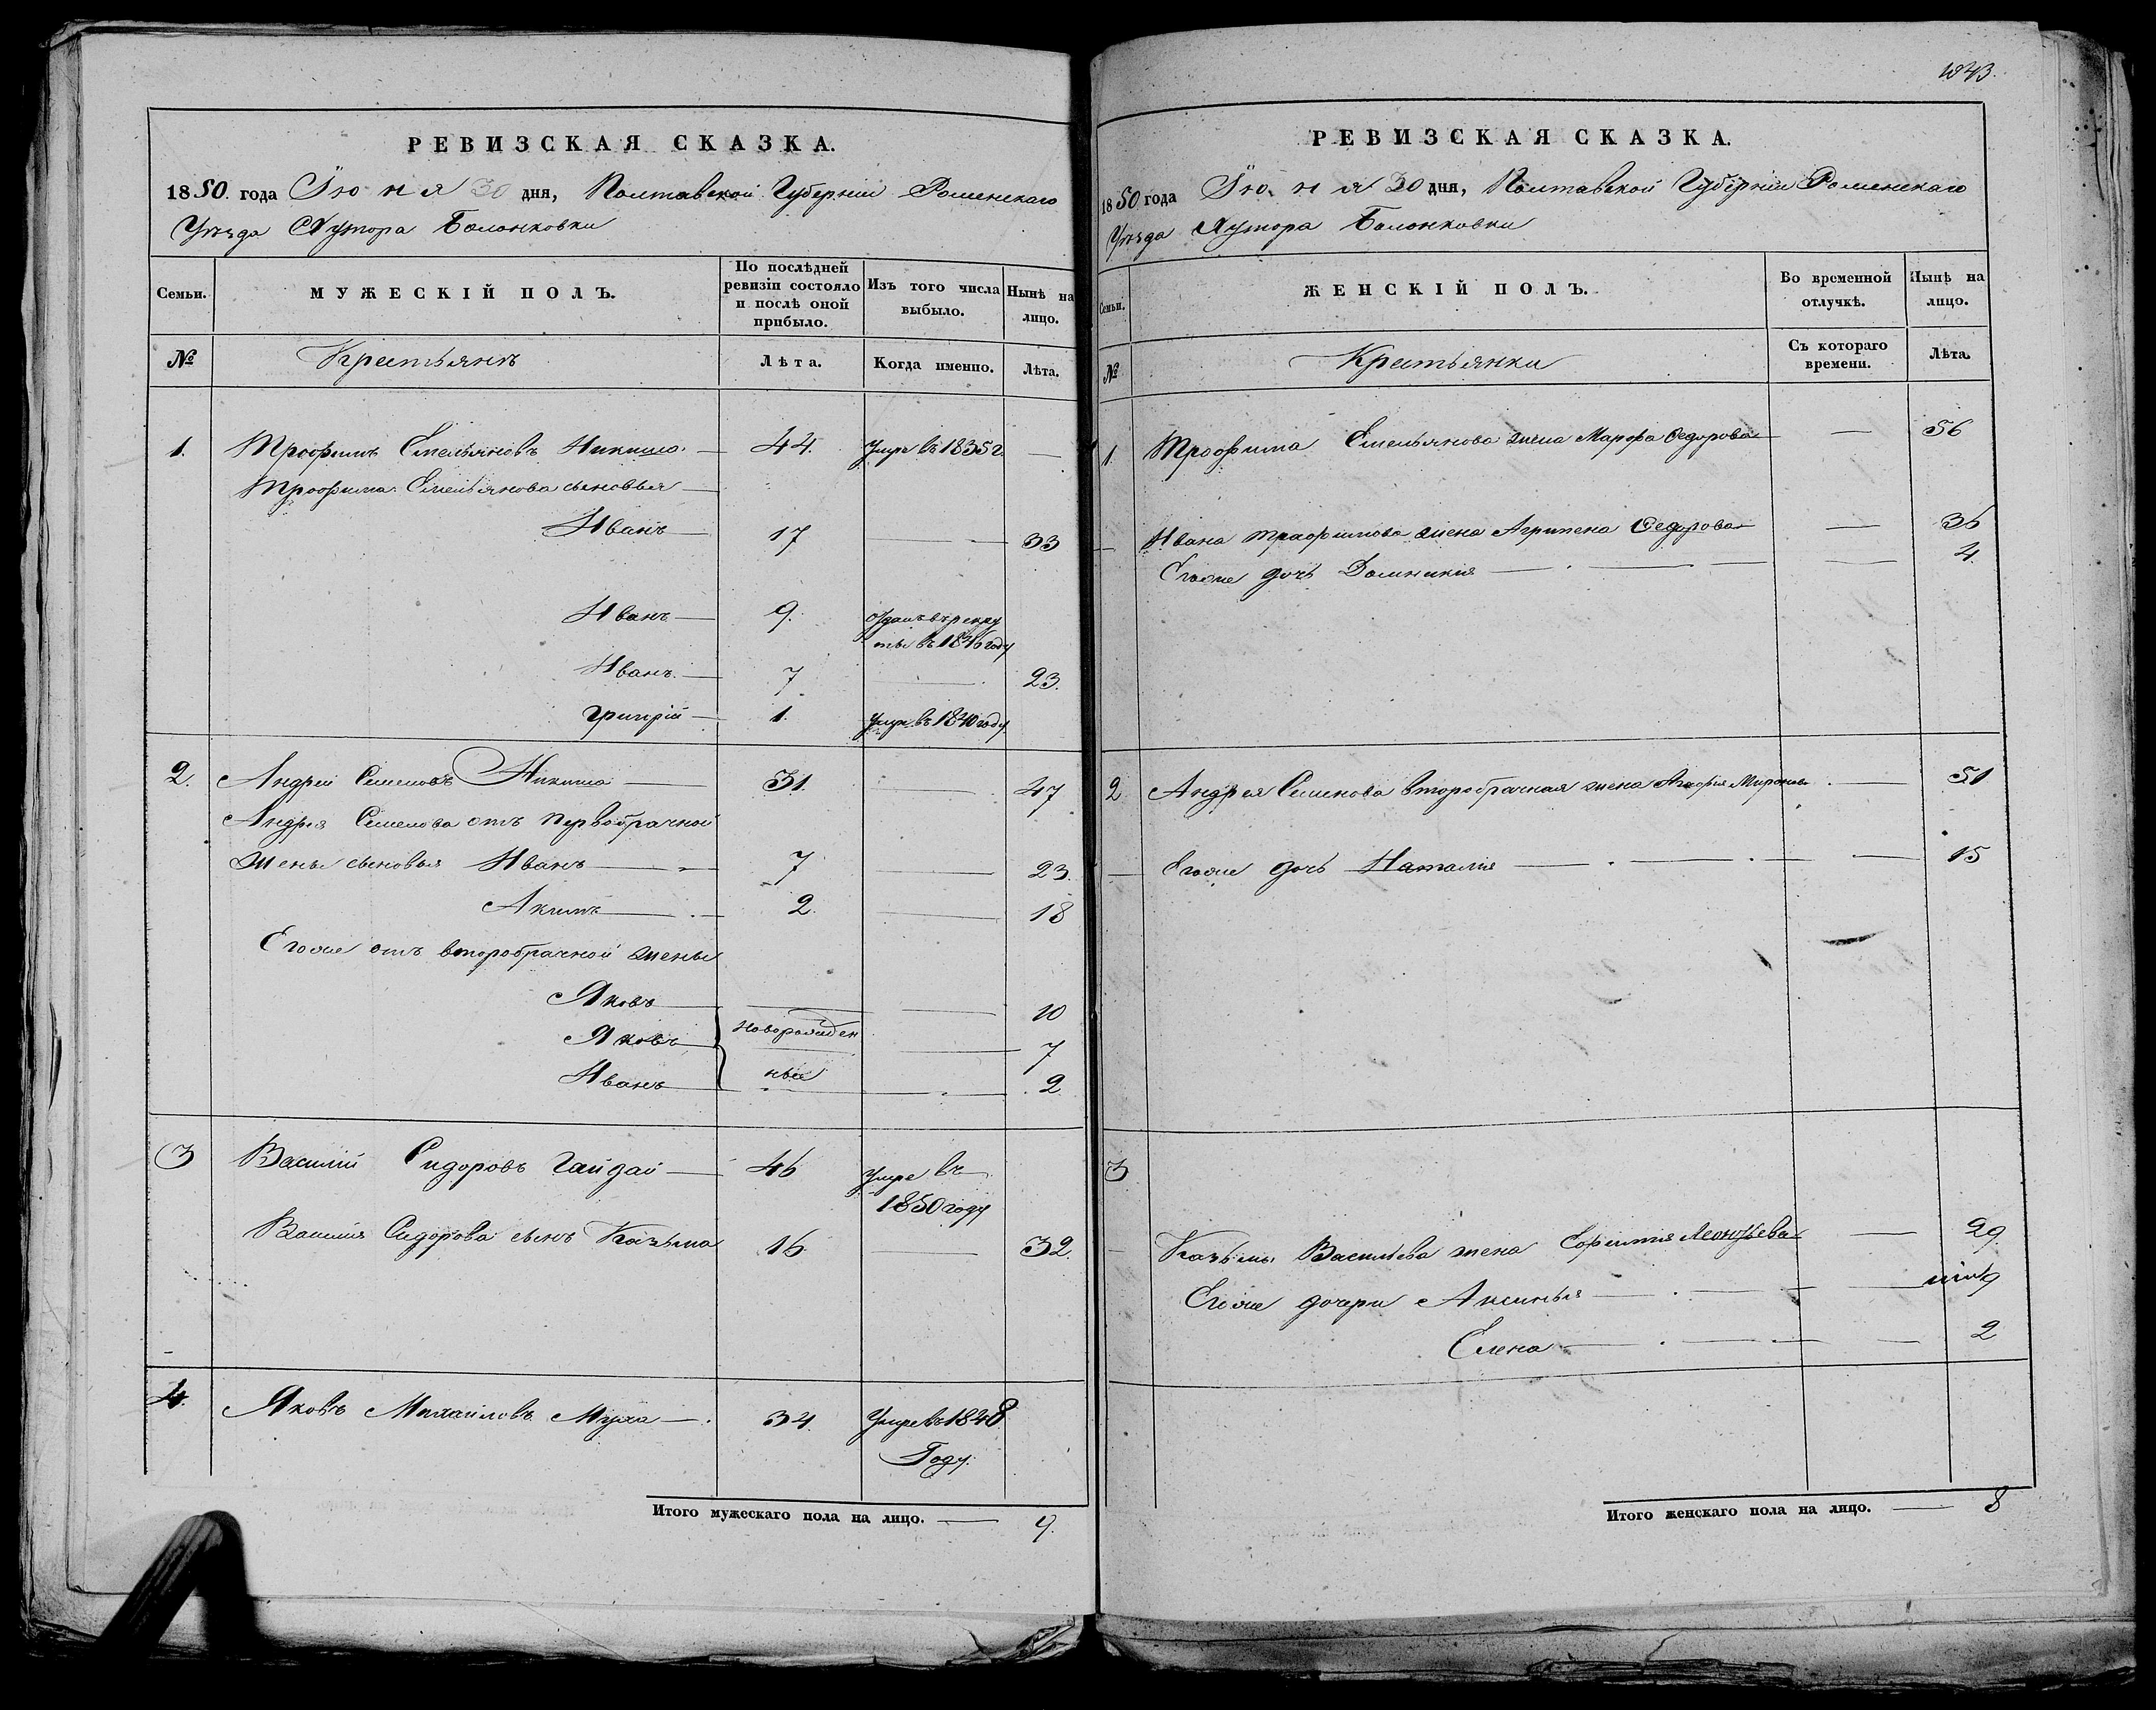 РЕВИЗСКАЯ СКАЗКА.
1850. года Іюня 30 дня, Полтавской Губерніи Роменскаго
Уѣзда Хутора Балонковки
Семьи.
МУЖЕСКІЙ ПОЛЪ.
По послѣдней ревизіи состояло и послѣ оной прибыло.
Изъ того числа выбыло.
Нынѣ на лицо.
№
Крестьянъ
Лѣта.
Когда именно.
Лѣта.
1. Трофимъ Емельяновъ Никиша. — 44. Умре въ 1835 г. —
Трофима Емельянова сыновья —
Иванъ — 17 — 33
Иванъ — 9. Отданъ въ рекру
ты въ 1846 году
Иванъ. — 7 — 23.
Григрій — 1. Умре въ 1840 году
2. Андрей Семеновъ Никиша — 31. — 47
Андрея Семенова отъ первобрачной
жены сыновья Иванъ — 7 — 23.
Акимъ — 2. — 18
Егоже отъ второбрачной жены
Яковъ — — 10
Яковъ — новорожден — 7
Иванъ — ныя — 2
3 Василій Сидоровъ Гайдай — 46 Умре въ
1850 году
Василия Сидорова сынъ Козьма 16 — 32.
4. Яковъ Михайловъ Муха — 34. Умре въ 1848
Году.
Итого мужескаго пола на лицо. — 9.
1843.
РЕВИЗСКАЯ СКАЗКА.
1850 года Іюня 30 дня, Полтавской Губерніи Роменскаго
Уѣзда Хутора Балонковки
Семьи.
ЖЕНСКІЙ ПОЛЪ.
Во временной отлучкѣ.
Нынѣ на лицо.
№
Крестьянки
Съ котораго времени.
Лѣта.
1. Трофима Емельянова жена Марфа Федорова — 56
— Ивана Трофимова жена Агрипена Федорова — 36
Егоже дочь Домникия — 4.
2 Андрея Семенова второбрачная жена Агафия Миронова — 51
— Егоже дочь Наталия — 15
3
— Козьмы Васильева жена Леонтьева — 29
Егоже дочери Аксинья — 9
Елена — 2
Итого женскаго пола на лицо. — 8